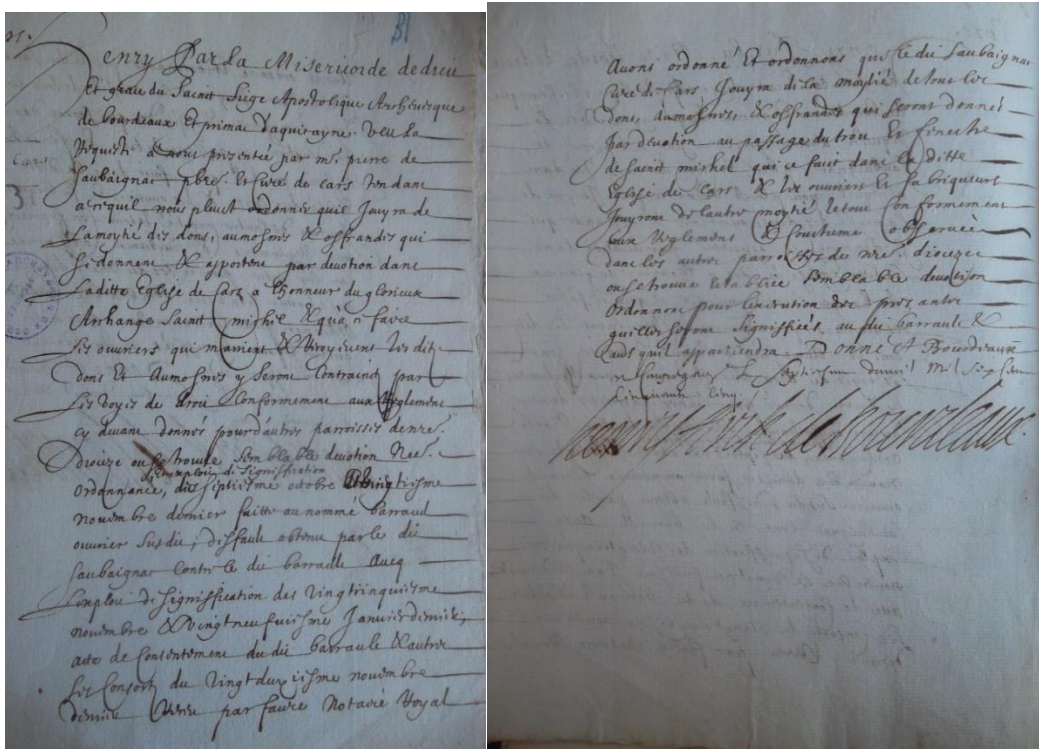 Henry Par la Misericorde de dieu
Et grace du Sainct Siège Apostolique Archevesque
de bourdeaux Et primat d'aquitayne. Veu la
Requeste a nous presentée par mr. pierre de
Saubaignac pbre. Et Curé de cars tendant
a ce quil nous pleust ordonner quil Jouyra de
La moytié des dons, aumosnes & offrandes qui
se donnent & apportent par devotion dans
Laditte Eglise de Cars a L'honneur du glorieux
Archange Sainct michel & que a faire
Les ouvriers qui manient & reçoivent Les dits
dons Et Aumosnes y seront Contraincts par
Les voyes de droit Conformement aux Reglement
cy devant donnes pour d'autres parroisses de nre.
Dioceze ou se trouve semblable devotion Nre.
exploit de signification
ordonnance, dix septiesme octobre vingtiesme
novembre dernier faitte au nommé barraud
ouvrier susdit, deffault obtenu par le dit
Saubaignac Contre le dit barrault Avec
L'exploit de signiffication des vingtcinquiesme
novembre & vingtneufviesme Janvier dernier,
acte de Consentement du dit barrault & autres
ses Consorts du vingtdeuxiesme novembre
dernier receu par faure Notaire Royal
Cars
81
Avons ordonné Et ordonnons que Le dit Saubaignac
Curé de Cars Jouyra de la moytié de tous les
dons, aumosnes, & offrandes qui seront donnés
par devotion au passage du trou Et fenestre
de sainct michel qui ce faict dans la ditte
Eglise de Cars & les ouvriers Et fabriqueurs
Jouyront de l'autre moytié Le tout Conformement
aux Reglemens & Coustume observée
dans les autres parroisses de nre. dioceze
ou se trouve establie semblable devotion
ordonnons pour l'execution des presantes
quelles seront signiffiées au dit barrault &
a tous quil appartiendra. Donné A Bourdeaux
Le septiesme d'avril Mil six cens
Cinquante Cinq.
henry Arch de bourdeaux